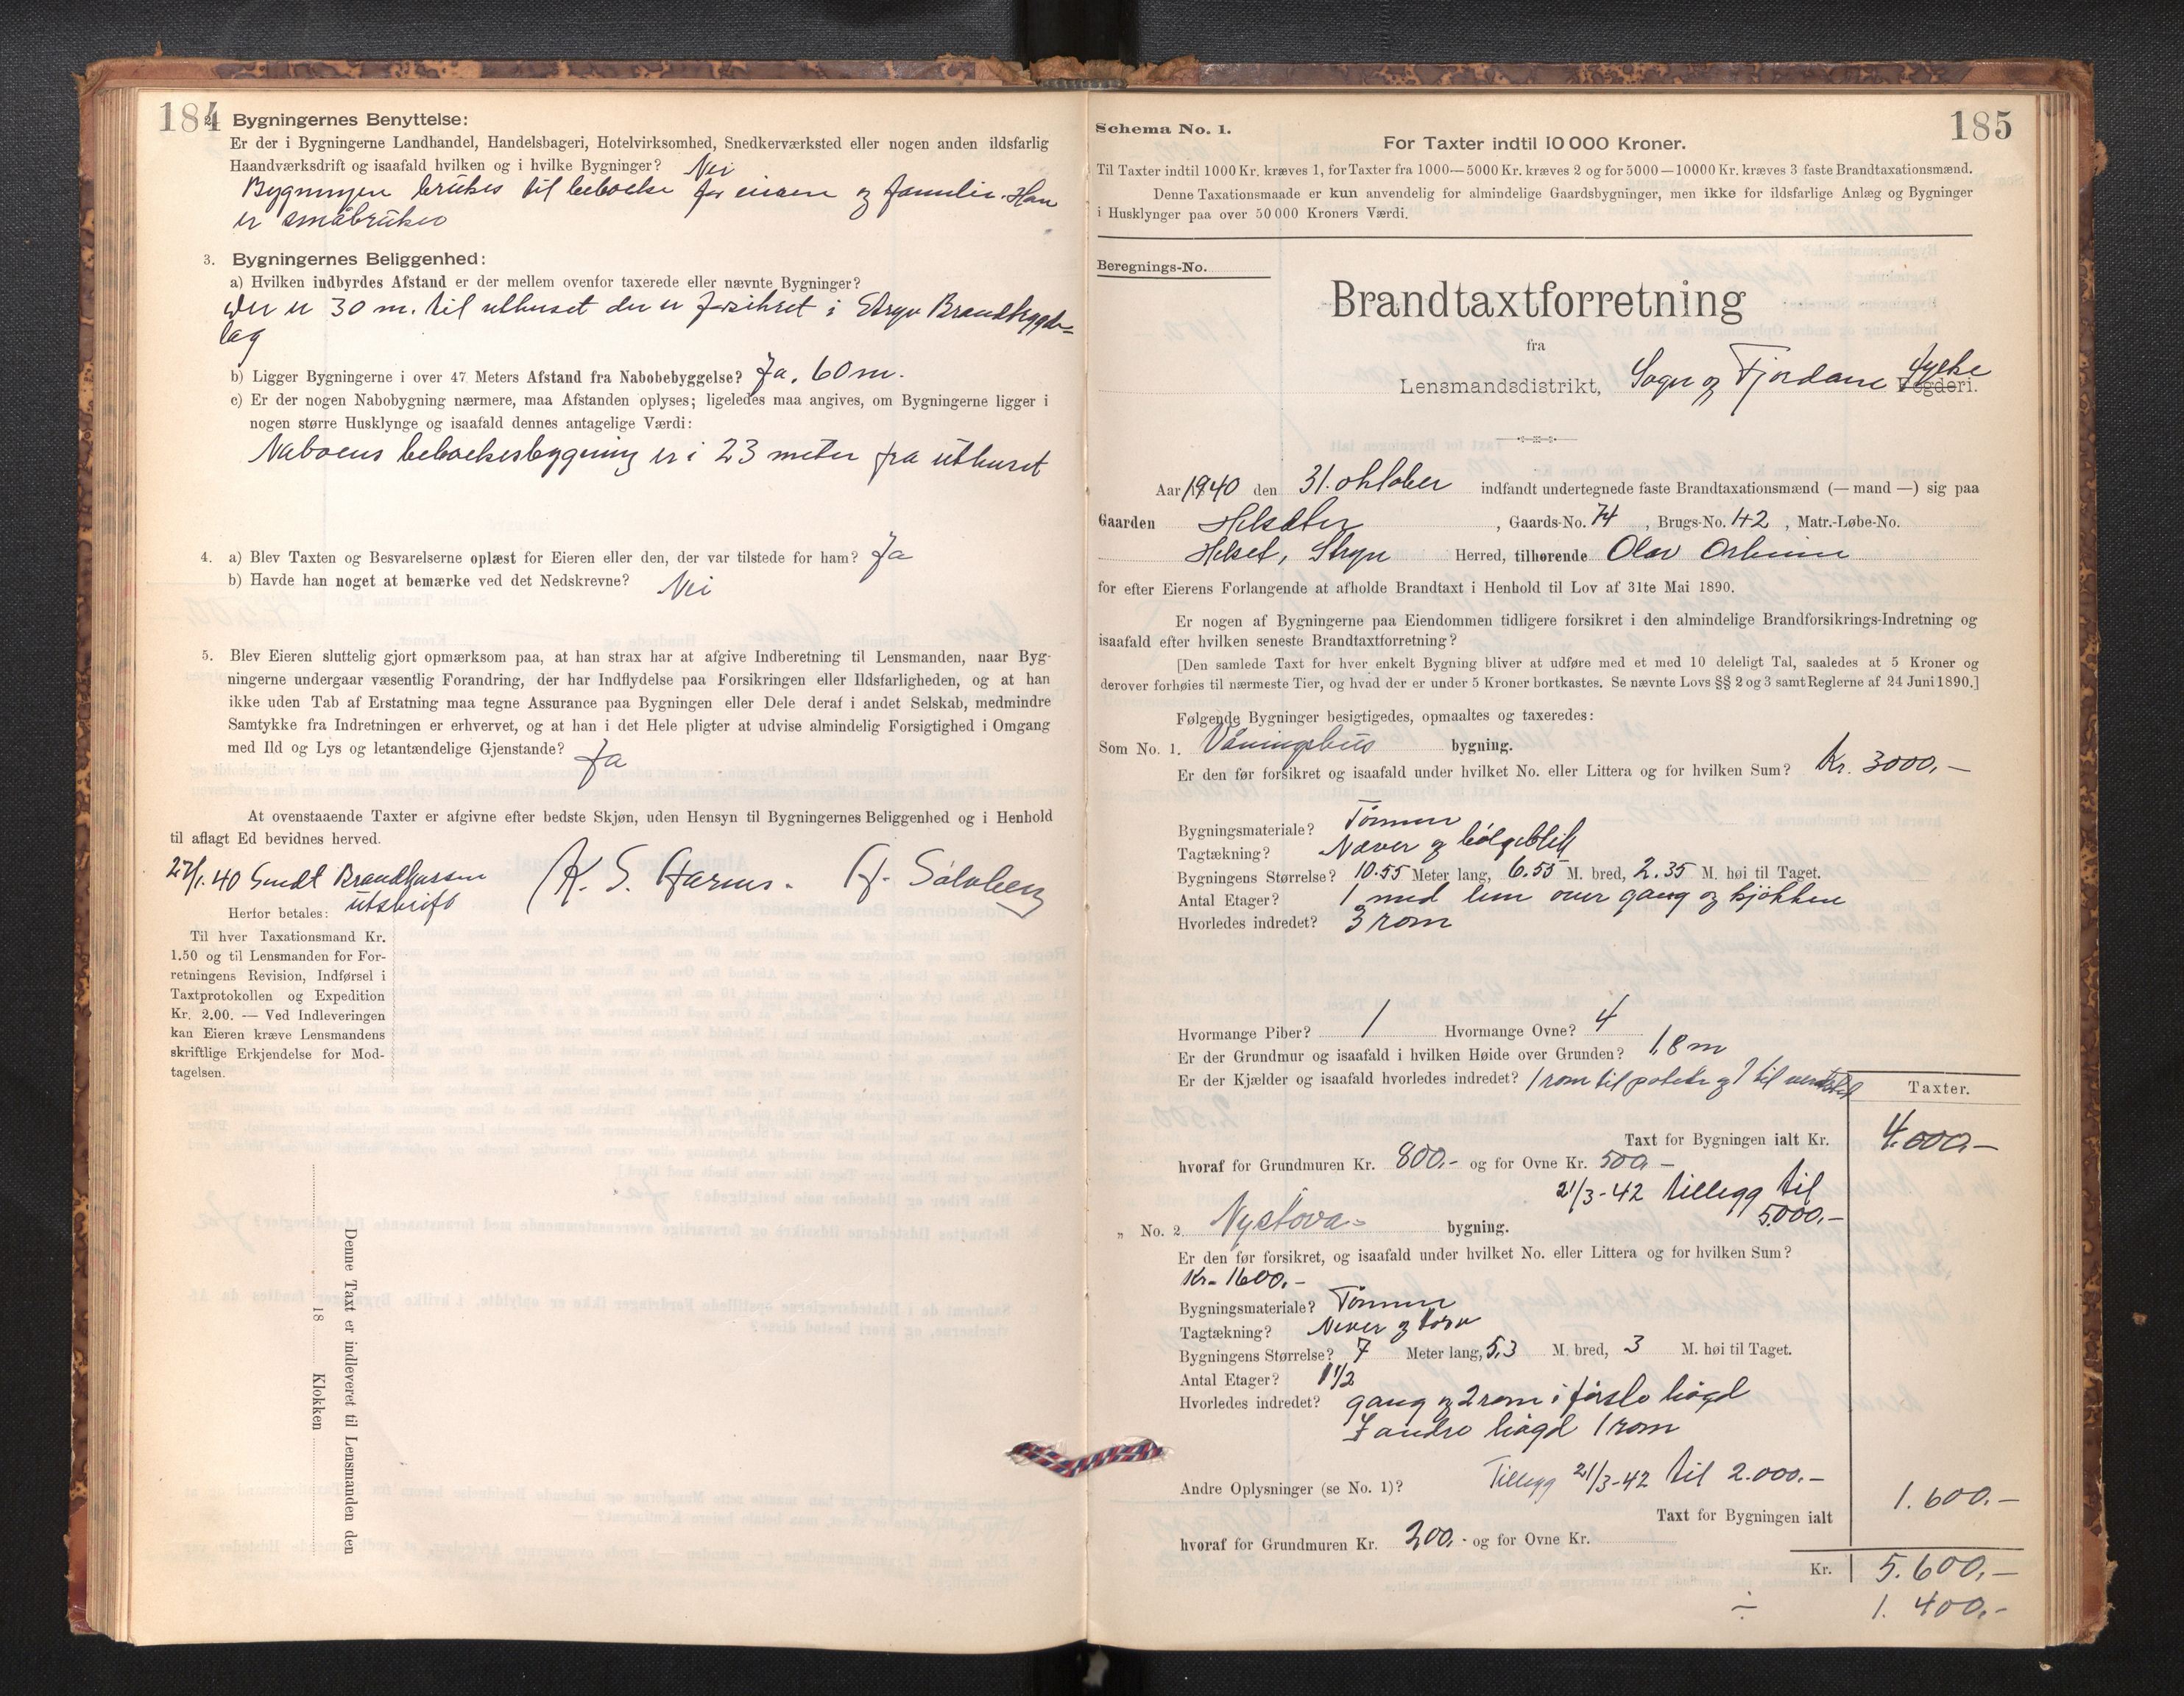 184
Bygningernes Benyttelse:
Er der i Bygningerne Landhandel, Handelsbageri, Hotelvirksomhed, Snedkerværksted eller nogen anden ildsfarlig
Haandværksdrift og isaafald hvilken og i hvilke Bygninger? Nei
Bygningen brukes til beboelse for eieren og familie. Han
er småbruker
3. Bygningernes Beliggenhed:
a) Hvilken indbyrdes Afstand er der mellem ovenfor taxerede eller nævnte Bygninger?
Der er 30 m. til uthuset der er forsikret i Stryn Brandbygde=
lag
b) Ligger Bygningerne i over 47 Meters Afstand fra Nabobebyggelse? Ja. 60 m.
c) Er der nogen Nabobygning nærmere, maa Afstanden oplyses; ligeledes maa angives, om Bygningerne ligger i
nogen større Husklynge og isaafald dennes antagelige Værdi:
Naboens beboelsesbygning er i 23 meter fra uthuset
4. a) Blev Taxten og Besvarelserne oplæst for Eieren eller den, der var tilstede for ham? Ja
b) Havde han noget at bemærke ved det Nedskrevne? Nei
5. Blev Eieren sluttelig gjort opmærksom paa, at han strax har at afgive Indberetning til Lensmanden, naar Byg-
ningerne undergaar væsentlig Forandring, der har Indflydelse paa Forsikringen eller Ildsfarligheden, og at han
ikke uden Tab af Erstatning maa tegne Assurance paa Bygningen eller Dele deraf i andet Selskab, medmindre
Samtykke fra Indretningen er erhvervet, og at han i det Hele pligter at udvise almindelig Forsigtighed i Omgang
med Ild og Lys og letantændelige Gjenstande? Ja
At ovenstaaende Taxter er afgivne efter bedste Skjøn, uden Hensyn til Bygningernes Beliggenhed og i Henhold
til aflagt Ed bevidnes herved.
27/1.40 Sendt Brandkassen K. S. H. Sølvberg
utskrift
Herfor betales:
Til hver Taxationsmand Kr.
1.50 og til Lensmanden for For-
retningens Revision, Indførsel i
Taxtprotokollen og Expedition
Kr. 2.00. — Ved Indleveringen
kan Eieren kræve Lensmandens
skriftlige Erkjendelse for Mod-
tagelsen.
Denne Taxt er indleveret til Lensmanden den
18 Klokken
185
Schema No. 1.
For Taxter indtil 10 000 Kroner.
Til Taxter indtil 1000 Kr. kræves 1, for Taxter fra 1000—5000 Kr. kræves 2 og for 5000—10000 Kr. kræves 3 faste Brandtaxationsmænd.
Denne Taxationsmaade er kun anvendelig for almindelige Gaardsbygninger, men ikke for ildsfarlige Anlæg og Bygninger
i Husklynger paa over 50 000 Kroners Værdi.
Beregnings-No.
Brandtaxtforretning
fra
Lensmandsdistrikt, Sogn og Fjordane Fylke Fogderi.
Aar 1940 den 31. oktober indfandt undertegnede faste Brandtaxationsmænd (— mand —) sig paa
Gaarden Helsæter, Gaards-No. 74, Brugs-No. 42, Matr.-Løbe-No.
Helset, Stryn Herred, tilhørende Olav
for efter Eierens Forlangende at afholde Brandtaxt i Henhold til Lov af 31te Mai 1890.
Er nogen af Bygningerne paa Eiendommen tidligere forsikret i den almindelige Brandforsikrings-Indretning og
isaafald efter hvilken seneste Brandtaxtforretning?
[Den samlede Taxt for hver enkelt Bygning bliver at udføre med et med 10 deleligt Tal, saaledes at 5 Kroner og
derover forhøies til nærmeste Tier, og hvad der er under 5 Kroner bortkastes. Se nævnte Lovs §§ 2 og 3 samt Reglerne af 24 Juni 1890.]
Følgende Bygninger besigtigedes, opmaaltes og taxeredes:
Som No. 1. Våningshus bygning.
Er den før forsikret og isaafald under hvilket No. eller Littera og for hvilken Sum? Kr. 3000,—
Bygningsmateriale? Tømmer
Tagtækning? Næver og bølgeblik
Bygningens Størrelse? 10.55 Meter lang, 6.55 M. bred, 2.35 M. høi til Taget.
Antal Etager? 1 med lem over gang og kjøkken
Hvorledes indredet? 3 rom
Hvormange Piber? 1 Hvormange Ovne? 4
Er der Grundmur og isaafald i hvilken Høide over Grunden? 1,8 m
Er der Kjælder og isaafald hvorledes indredet? 1 rom til potete og 1 til verksted
Taxter.
Taxt for Bygningen ialt Kr. 4.000,—
hvoraf for Grundmuren Kr. 800,- og for Ovne Kr. 500,—
21/3-42 tillegg til
5000,—
„ No. 2. Nystova- bygning.
Er den før forsikret, og isaafald under hvilket No. eller Littera og for hvilken Sum?
Kr. 1600,—
Bygningsmateriale? Tømmer
Tagtækning? Never og torv
Bygningens Størrelse? 7 Meter lang, 5,3 M. bred, 3 M. høi til Taget.
Antal Etager? 1 1/2
Hvorledes indredet? gang og 2 rom i første høgd
I andre høgd 1 rom
Andre Oplysninger (se No. 1)? Tillegg 21/3-42 til 2.000,—
Taxt for Bygningen ialt 1.600,—
hvoraf for Grundmuren Kr. 200,- og for Ovne Kr.
Kr. 5.600,—
÷ 1.400,-